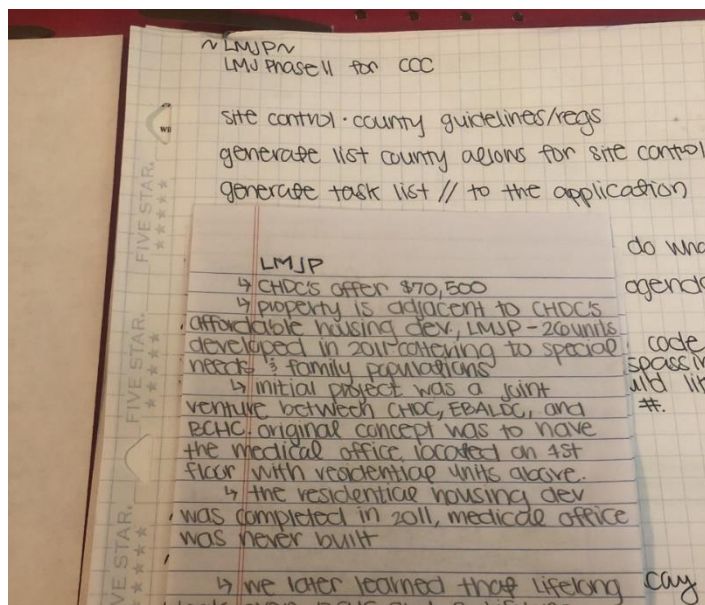 ~LMJP~
LMJ Phase II for CCC
site control · county guidelines/regs
generate list county allows for site control
generate task list // to the application
do
agenda
code
#.
LMJP
↳ CHDC's offer $70,500
↳ property is adjacent to CHDC's
affordable housing dev., LMJP - 26 units
developed in 2011 cattering to special
needs & family populations
↳ initial project was a joint
venture between CHDC, EBALDC, and
BCHC. original concept was to have
the medical office, located on 1st
floor with residential units above.
↳ the residential housing dev
was completed in 2011, medical office
was never built
↳ we later learned that Lifelong
cay
FIVE STAR.
FIVE STAR.
FIVE STAR.